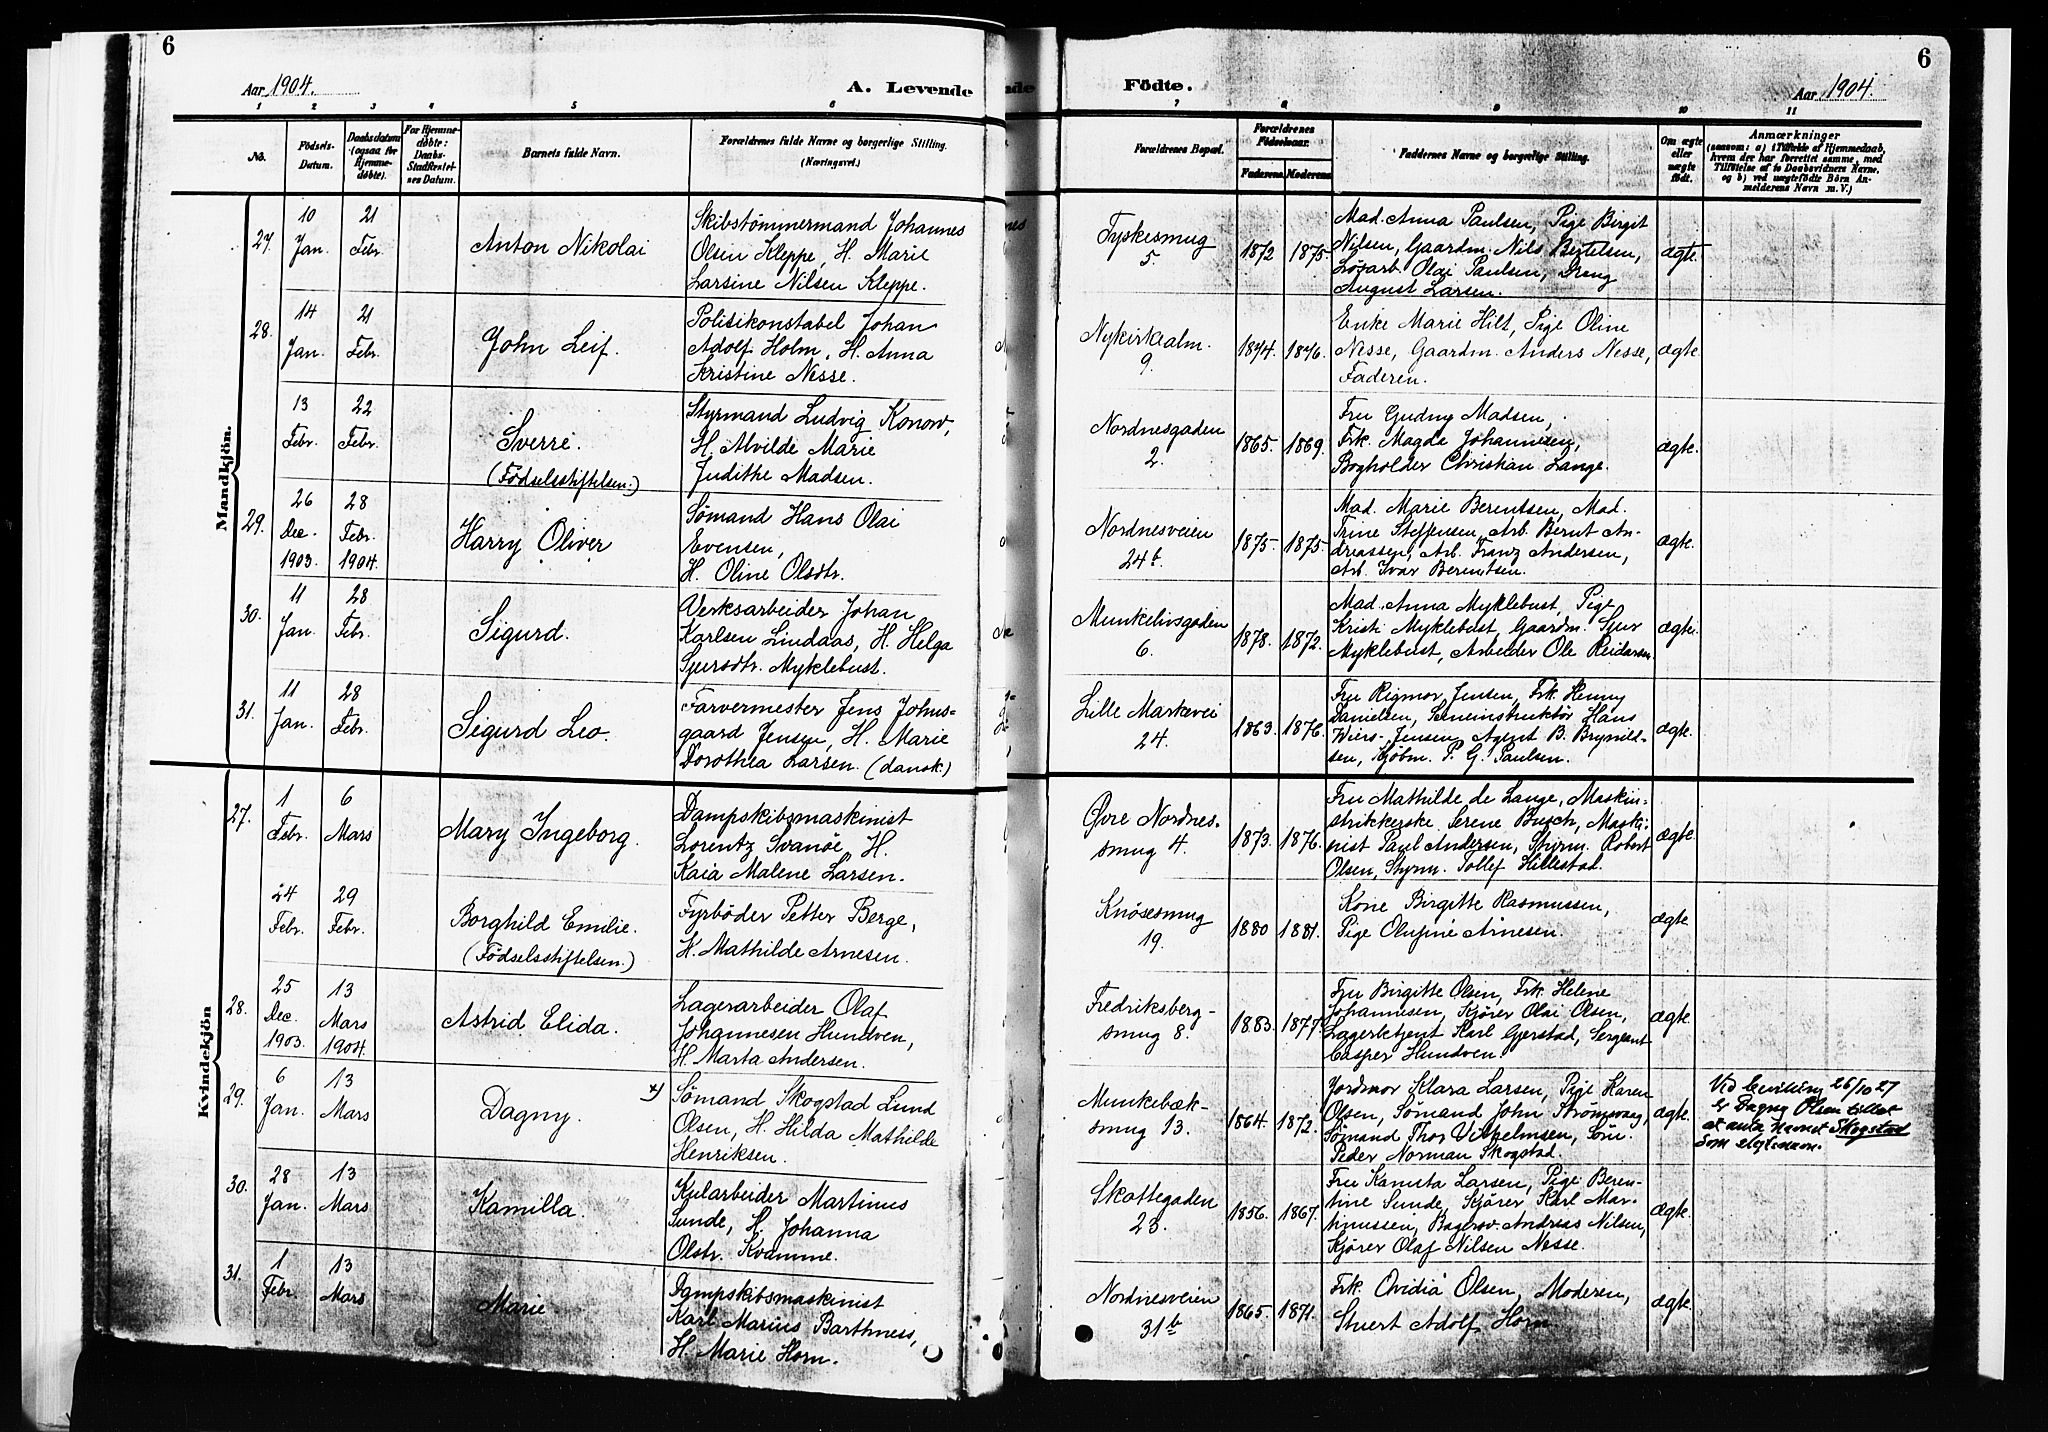 6
Aar 1904.
A. Levende
1 2 3 4 5 6
No.
Födsels-
Datum.
Daabsdatum
(ogsaa for
Hjemme-
döbte).
For Hjemme-
döbte:
Daabs-
Stadfæstel-
ses Datum.
Barnets fulde Navn.
Forældrenes fulde Navne og borgerlige Stilling.
(Næringsvei.)
Mandkjön.
27.
10
Jan.
21
Febr.
Anton Nikolai
Skibstømmermand Johannes
Olsen Kleppe, H. Marie
Larsine Nilsen Kleppe.
28.
14
Jan.
21
Febr.
John Leif.
Politikonstabel Johan
Adolf Holm, H. Anna
Kristine Nesse.
13
Febr.
22
Febr.
Sverre.
(Fødselsstiftelsen.)
Styrmand Ludvig Konow,
H. Alvilde Marie
Judithe Madsen.
29.
26
Dec.
1903.
28
Febr.
1904.
Harry Oliver
Sømand Hans Olai
Evensen,
H. Oline Olsdtr.
30.
11
Jan.
28
Febr.
Sigurd.
Verksarbeider Johan
Karlsen Lindaas, H. Helga
Sjursdtr. Myklebust.
31.
11
Jan.
28
Febr.
Sigurd Leo.
Farvermester Jens Johns-
gaard Jensen, H. Marie
Dorothea Larsen. (dansk.)
Kvindekjön
27.
1
Febr.
6
Mars
Mary Ingeborg.
Dampskibsmaskinist
Lorentz Svanöe, H.
Kaia Malene Larsen.
24
Febr.
29
Febr.
Borghild Emilie.
(Fødselsstiftelsen.)
Fyrbøder Petter Berge,
H. Mathilde Arnesen.
28.
25
Dec.
1903.
13
Mars
1904.
Astrid Elida.
Lagerarbeider Olaf
Johannesen Hundven,
H. Marta Andersen.
29.
6
Jan.
13
Mars
Dagny. x)
Sømand Skogstad Lund
Olsen, H. Hilda Mathilde
Henriksen.
30.
28
Jan.
13
Mars
Kamilla.
Kularbeider Martinus
Sunde, H. Johanna
Olstr. Kvamme.
31.
1
Febr.
13
Mars
Marie
Dampskibsmaskinist
Karl Marius Barthness,
H. Marie Horn.
6
Födte.
Aar 1904.
7 8 9 10 11
Forældrenes Bopæl.
Forældrenes
Födselsaar.
Faderens. Moderens.
Faddernes Navne og borgerlige Stilling.
Om ægte
eller
uægte
födt.
Anmærkninger
(saasom: a) i Tilfælde af Hjemmedaab,
hvem der har forrettet samme, med
Tilföielse af to Daabsvidners Navne,
og b) ved uægtefödte Börn An-
melderens Navn m. V.)
Tyskesmug
5.
1872 1875.
Mad. Anna Paulsen, Pige Birgit
Nilsen, Gaardm. Nils Bertelsen,
Løsarb. Olai Paulsen, Dreng
August Larsen.
ægte.
Nykirkealm.
9.
1874. 1876.
Enke Marie Hilt, Pige Oline
Nesse, Gaardm. Anders Nesse,
Faderen.
ægte.
Nordnesgaden
2.
1865. 1869.
Fru Gudny Madsen,
Frk. Magda Johannesen,
Bogholder Christian Lange.
ægte.
Nordnesveien
24b.
1875. 1875.
Mad. Marie Berentsen, Mad.
Trine Steffensen, Arb. Bernt An-
dreassen, Arb. Franz Andersen,
Arb. Ivar Berentsen.
ægte.
Munkelivsgaden
6.
1878. 1872.
Mad. Anna Myklebust, Pige
Kristi Myklebust, Gaardm. Sjur
Myklebust, Arbeider Ole Reidarsen.
ægte.
Lille Markevei
24.
1863. 1876.
Fru Rigmor Jensen, Frk. Henny
Danielsen, Sceneinstruktør Hans
Wiers-Jensen, Agent B. Brynild-
sen, Kjøbm. P. G. Paulsen.
ægte.
Øvre Nordnes-
smug 4.
1873. 1876.
Fru Mathilde de Lange, Maskin-
strikkerske Serene Busch, Maski-
nist Paul Andersen, Styrm. Robert
Olsen, Styrm. Tollef Hillestad.
ægte.
Knøsesmug
19.
1880 1881.
Kone Birgitte Rasmussen,
Pige Olufine Arnesen.
ægte.
Fredriksberg-
smug 8.
1883. 1877.
Fru Birgitte Olsen, Frk. Helene
Johannesen, Kjører Olai Olsen,
Lagerbetjent Karl Gjerstad, Sergeant
Casper Hundven.
ægte.
Munkebæk-
smug 13.
1864. 1872.
Jordmor Klara Larsen, Pige Karen
Olsen, Sømand John Strømsvaag,
Sømand Thor Vilhelmsen, Søn.
Peder Norman Skogstad.
ægte.
Vid bevilling 26/10 27
er Dagny Olsen tillat
at anta navnet Skogstad
som slegtsnavn.
Skottegaden
23.
1856. 1867.
Fru Kamsta Larsen, Pige Beren-
tine Sunde, Kjører Karl Mar-
tinussen, Bagersv. Andreas Nilsen,
Kjører Olaf Nilsen Nesse.
ægte.
Nordnesveien
31b
1865. 1871.
Frk. Ovidia Olsen, Moderen,
Stuert Adolf Horn.
ægte.